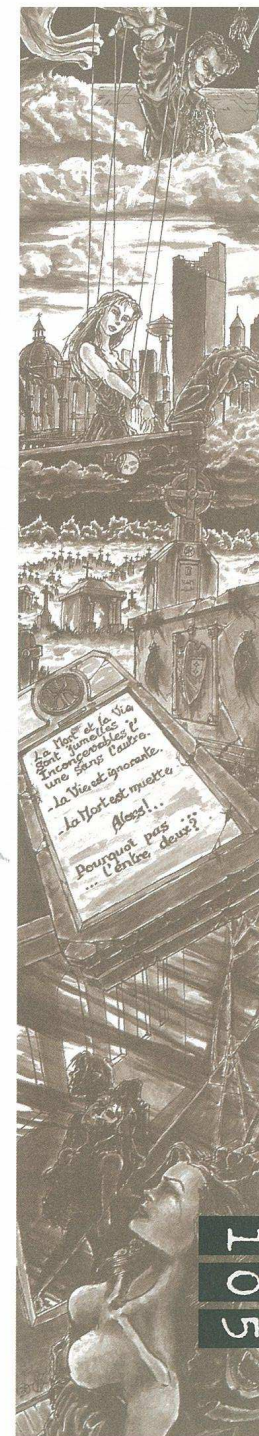 La Mort et la Vie
sont jumelles
Inconcevables l'
une sans l'autre.
-La Vie est ignorante.
-La Mort est muette
Alors!...
Pourquoi pas
... l'entre deux?
105